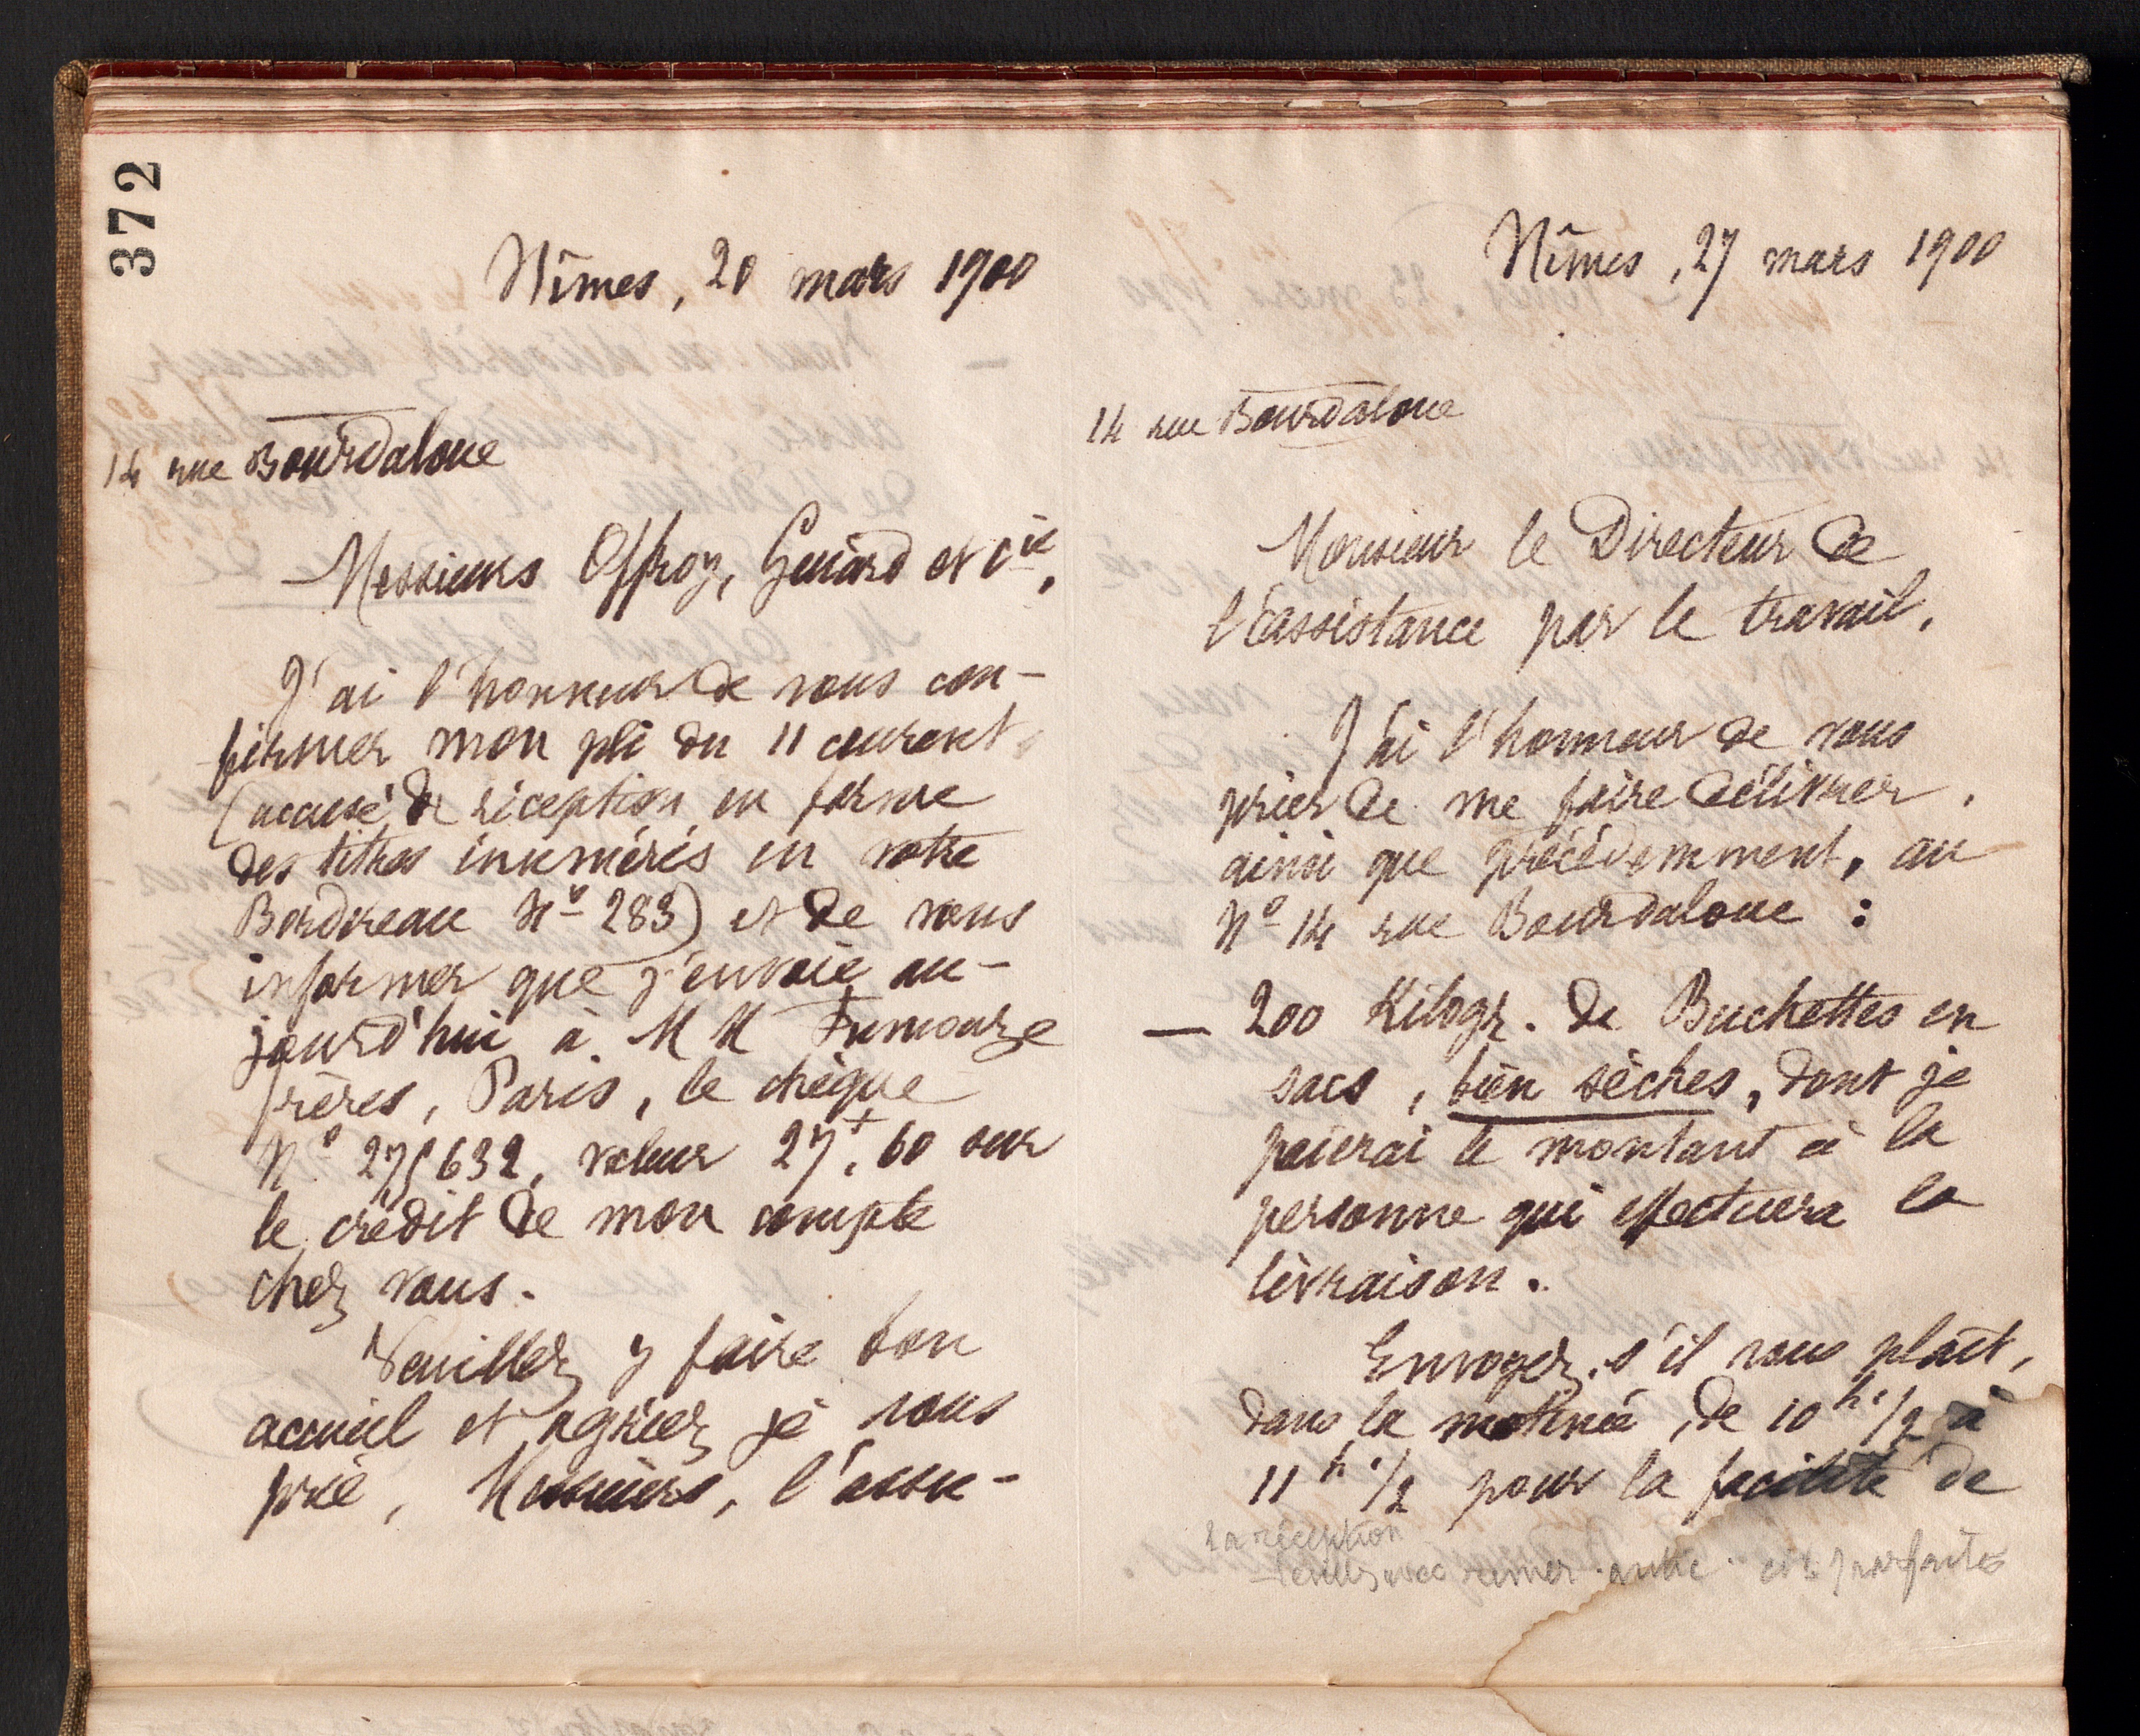 372
Nîmes, 20 mars 1900
14 rue Bourdaloue
Messieurs Offroy, Guiard et Cie,
J'ai l'honneur de vous con-
firmer mon pli du 11 courant,
(accusé de réception en forme
des titres énumérés en votre
Bordereau No 283) et de vous
informer que j'envoie au-
jourd'hui à MM Fumouze
frères, Paris, le chèque
No 275632, valeur 27f,60 sur
le crédit de mon compte
chez vous.
Veuillez y faire bon
accueil et agréer, je vous
prie, Messieurs, l'assu-
Nîmes, 27 mars 1900
14 rue Bourdaloue
Monsieur le Directeur de
l'assistance par le travail,
J'ai l'honneur de vous
prier de me faire délivrer,
ainsi que précédemment, au
No 14 rue Bourdaloue :
— 200 Kilogr. de Buchettes en
sacs, bien sèches, dont je
paierai le montant à la
personne qui effectuera la
livraison.
Envoyez, s'il vous plaît,
dans la matinée, de 10 h 1/2 à
11 h 1/2 pour la facilité de
la réception
parfaites